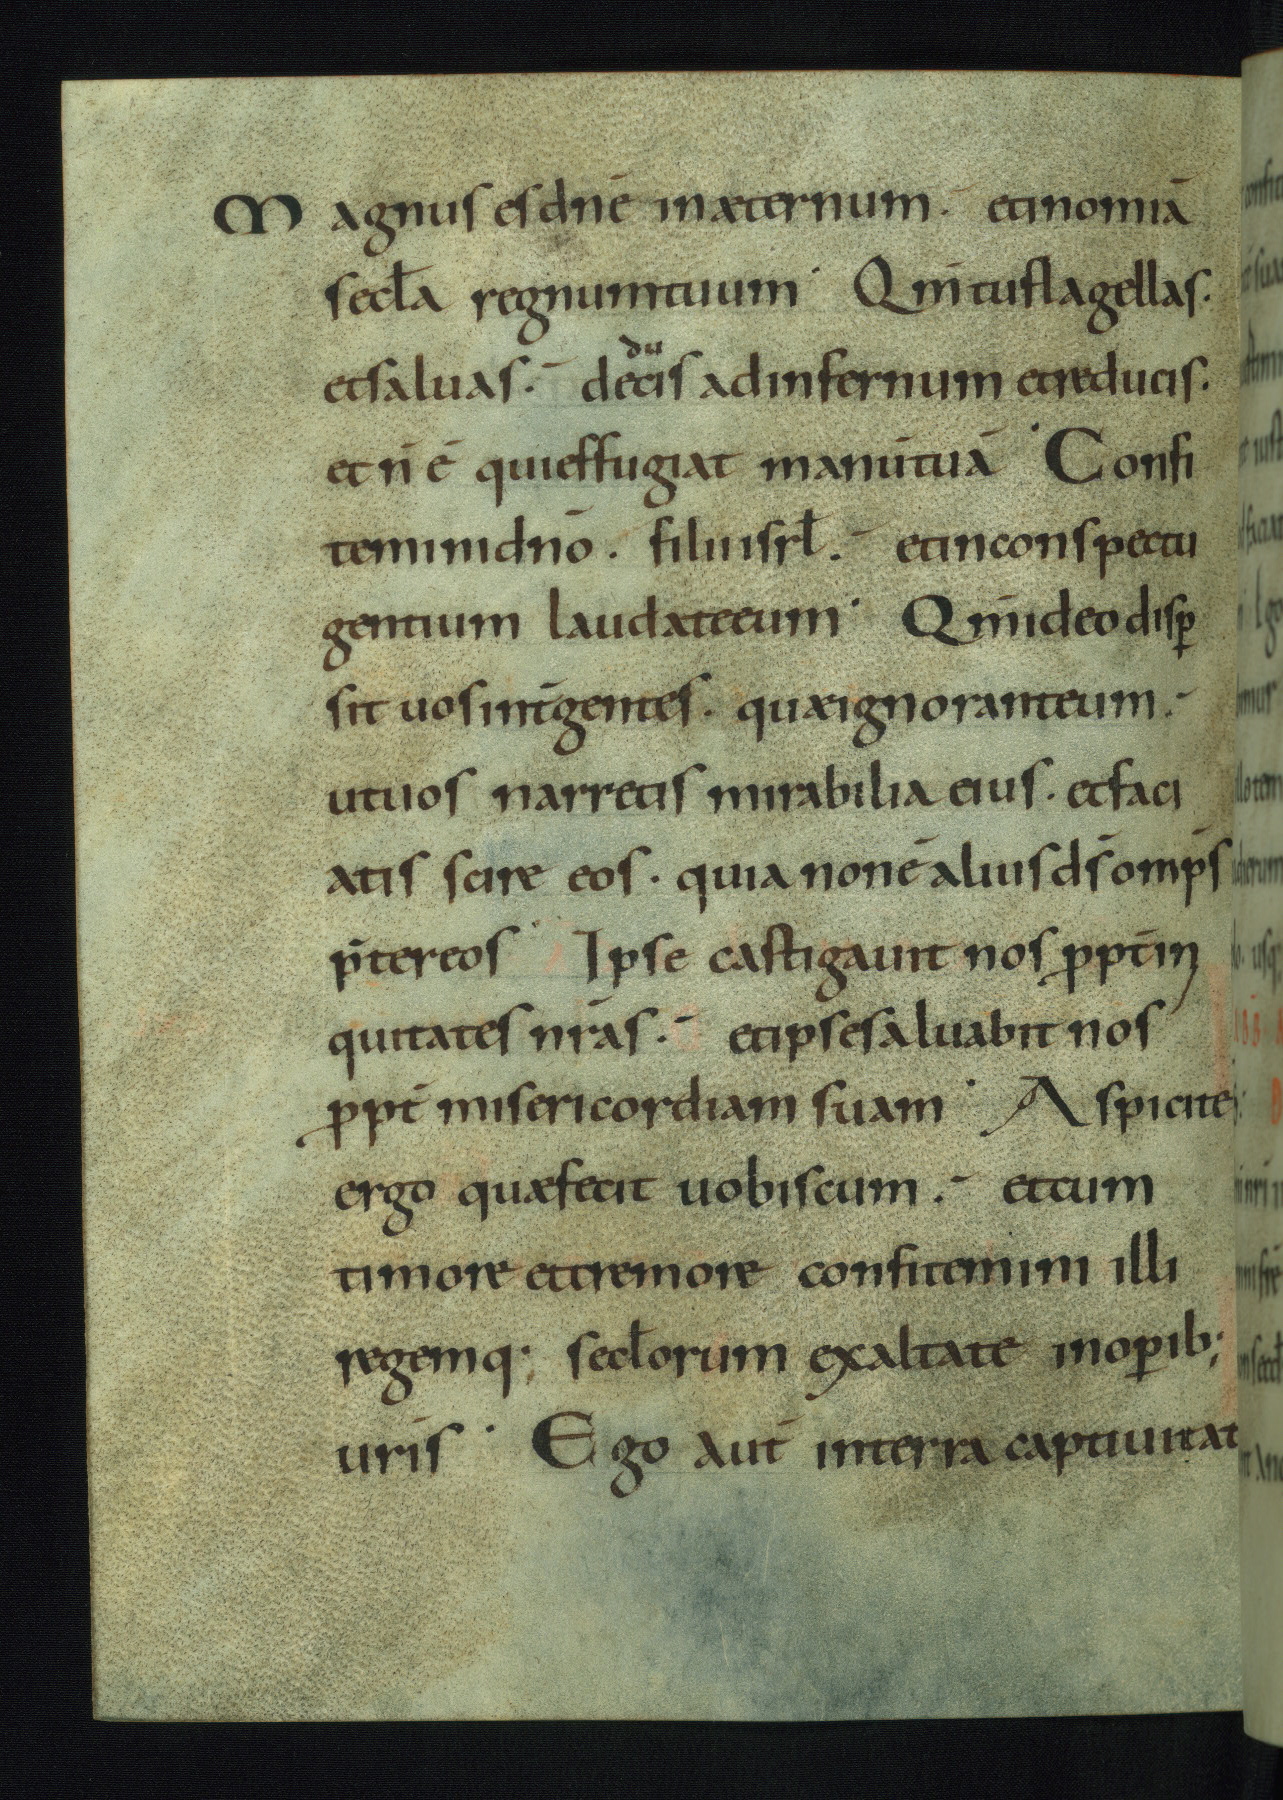 Magnus es dn̄e inæternum. etinomīa
secl̄a regnumtuum Qm̄ tuflagellas.
etsaluas. decis adinfernum etreducis.
du
et n̄ ē quieffugiat manūtuā Confi
teminidn̄o. filiiisrl̄. etinconspectu
gentium laudateeum Qm̄ideodisp̱
sit uosint̄gentes. quæignoranteum.
utuos narretis mirabilia eius. etfaci
atis scire eos. quia nonē aliusds̄omp̄s
p̄tereos Ipse castigauit nos ꝓpt̄in
quitates nr̄as. etipsesaluabit nos
ꝓpt̄ misericordiam suam Aspicite
ergo quæfecit uobiscum. etcum
timore ettremore confitemini illi
regemq; secl̄orum exaltate inoꝑib;
uris Ego aut̄ interra captiuitat